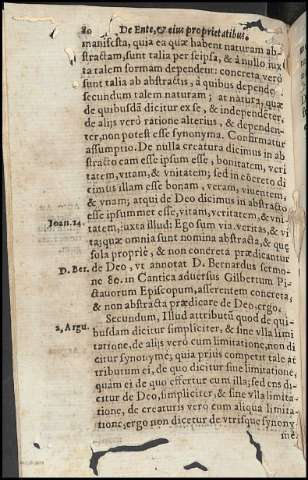 80 De Ente, & eius proprietatibus.
manifesta, quia ea quæ habent naturam ab-
stractam, sunt talia per seipsa, & à nullo iux
ta talem formam dependent: concreta verò
sunt talia ab abstractis, à quibus depende
secundum talem naturam; at natura, quæ
de quibusdã dicitur ex se, & independẽter,
de alijs verò ratione alterius, & dependen-
ter, non potest esse synonyma. Confirmatur
assumptio. De nulla creatura dicimus in ab
stracto eam esse ipsum esse, bonitatem, veri
tatem, vitam, & vnitatem; sed in cõcreto di
cimus illam esse bonam, veram, viuentem,
& vnam; atqui de Deo dicimus in abstracto
esse ipsummet esse, vitam, veritatem, & vni
Ioan. 14. tatem, iuxta illud: Ego sum via, veritas, & vi
ta; quæ omnia sunt nomina abstracta, & quę
sola propriè, & non concreta prædicantur
D. Ber. de Deo, vt annotat D. Bernardus sermo-
ne 80. in Cantica aduersus Gilbertum Pi-
ctauorum Episcopum, asserentem concreta,
& non abstracta prædicare de Deo, ergo.
Secundum, Illud attributũ quod de qui-
2, Argu. busdam dicitur simpliciter, & sine vlla limi
tatione, de alijs verò cum limitatione, non di
citur synonyme; quia priùs competit tale at
tributum ei, de quo dicitur sine limitatione,
quàm ei de quo effertur cum illa; sed ens di-
citur de Deo, simpliciter, & sine vlla limita-
tione, de creaturis verò cum aliqua limita-
tione, ergo non dicetur de vtrisque synony
me.